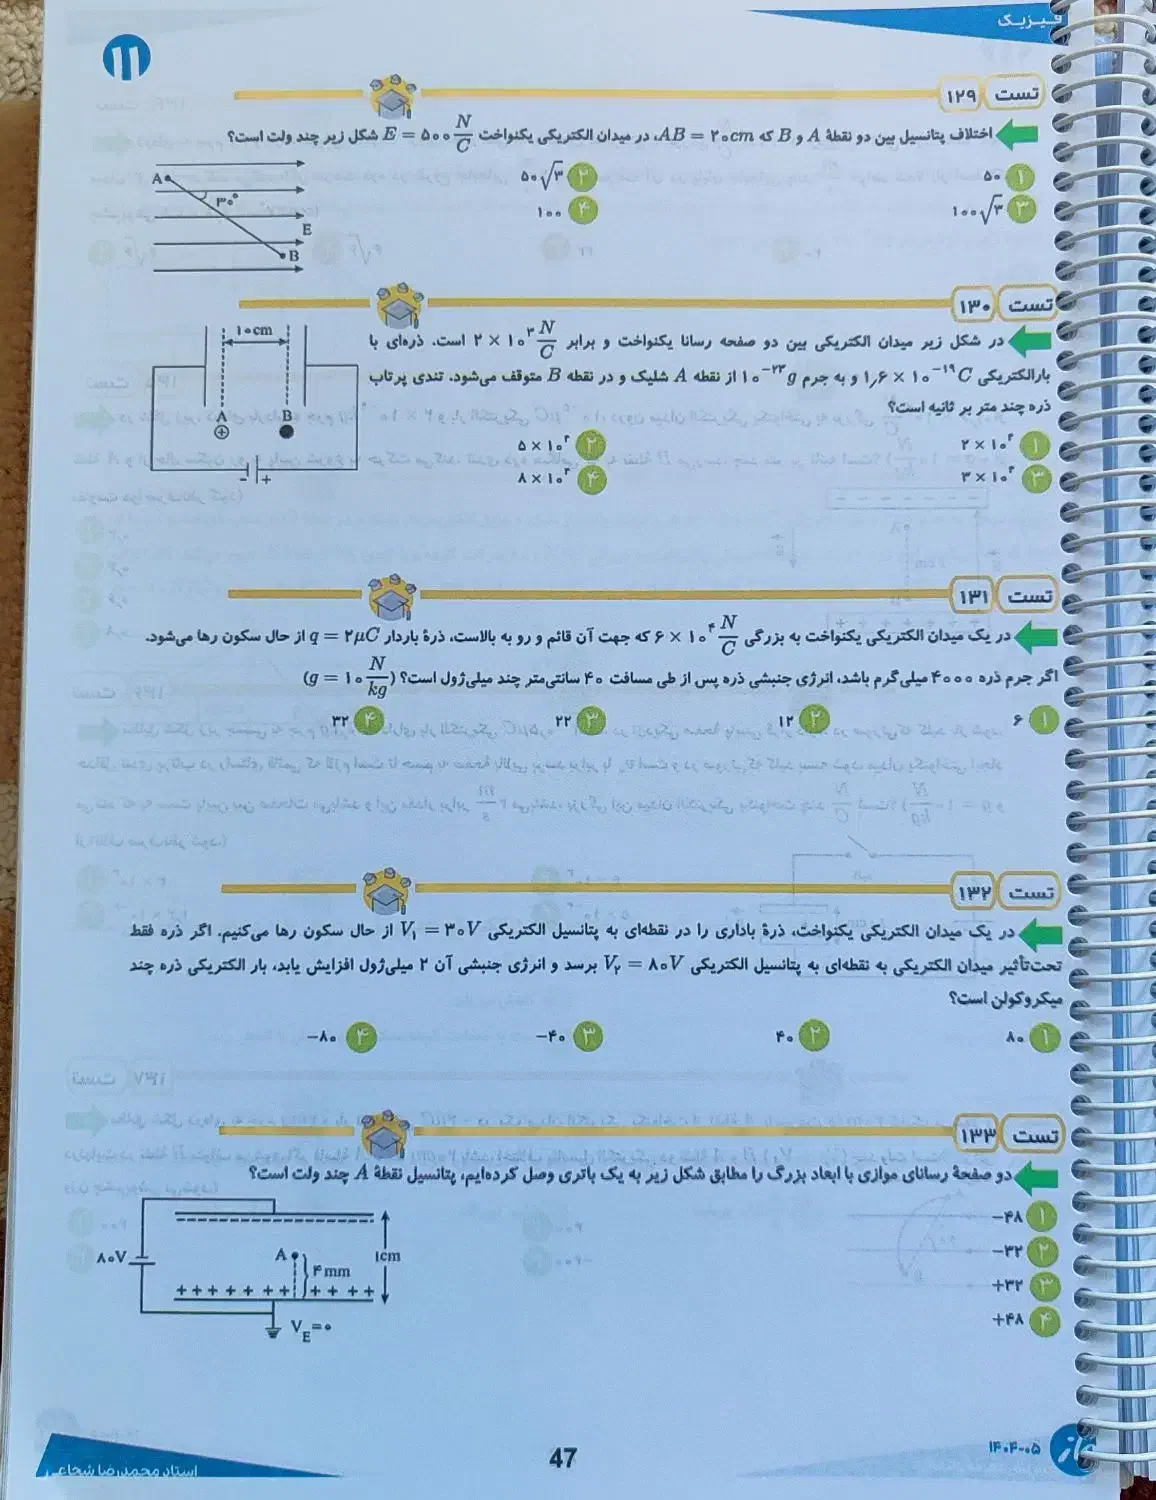 فیزیک
۱۱
تست ۱۲۹
اختلاف پتانسیل بین دو نقطهٔ A و B که AB = ۲۰cm، در میدان الکتریکی یکنواخت E = ۵۰۰ N/C شکل زیر چند ولت است؟
۱ ۵۰ ۲ ۵۰√۳
۳ ۱۰۰√۳ ۴ ۱۰۰
A ۳۰° E B
تست ۱۳۰
در شکل زیر میدان الکتریکی بین دو صفحه رسانا یکنواخت و برابر ۲ × ۱۰^۳ N/C است. ذره‌ای با
بارالکتریکی ۱٫۶ × ۱۰^-۱۹ C و به جرم ۱۰^-۲۳ g از نقطه A شلیک و در نقطه B متوقف می‌شود. تندی پرتاب
ذره چند متر بر ثانیه است؟
۱ ۲ × ۱۰^۴ ۲ ۵ × ۱۰^۴
۳ ۳ × ۱۰^۴ ۴ ۸ × ۱۰^۴
۱۰cm
A B
- +
تست ۱۳۱
در یک میدان الکتریکی یکنواخت به بزرگی ۶ × ۱۰^۴ N/C که جهت آن قائم و رو به بالاست، ذرهٔ باردار q = ۲μC از حال سکون رها می‌شود.
اگر جرم ذره ۴۰۰۰ میلی‌گرم باشد، انرژی جنبشی ذره پس از طی مسافت ۴۰ سانتی‌متر چند میلی‌ژول است؟ (g = ۱۰ N/kg)
۱ ۶ ۲ ۱۲ ۳ ۲۲ ۴ ۳۲
تست ۱۳۲
در یک میدان الکتریکی یکنواخت، ذرهٔ باداری را در نقطه‌ای به پتانسیل الکتریکی V₁ = ۳۰V از حال سکون رها می‌کنیم. اگر ذره فقط
تحت‌تأثیر میدان الکتریکی به نقطه‌ای به پتانسیل الکتریکی V₂ = ۸۰V برسد و انرژی جنبشی آن ۲ میلی‌ژول افزایش یابد، بار الکتریکی ذره چند
میکروکولن است؟
۱ ۸۰ ۲ ۴۰ ۳ -۴۰ ۴ -۸۰
تست ۱۳۳
دو صفحهٔ رسانای موازی با ابعاد بزرگ را مطابق شکل زیر به یک باتری وصل کرده‌ایم، پتانسیل نقطهٔ A چند ولت است؟
۱ -۴۸
۲ -۳۲
۳ +۳۲
۴ +۴۸
۸۰V A ۴mm ۱cm
+ + + + + + + + + + +
V_E=۰
۱۴۰۴-۰۵
47
استاد محمدرضا شجاعی